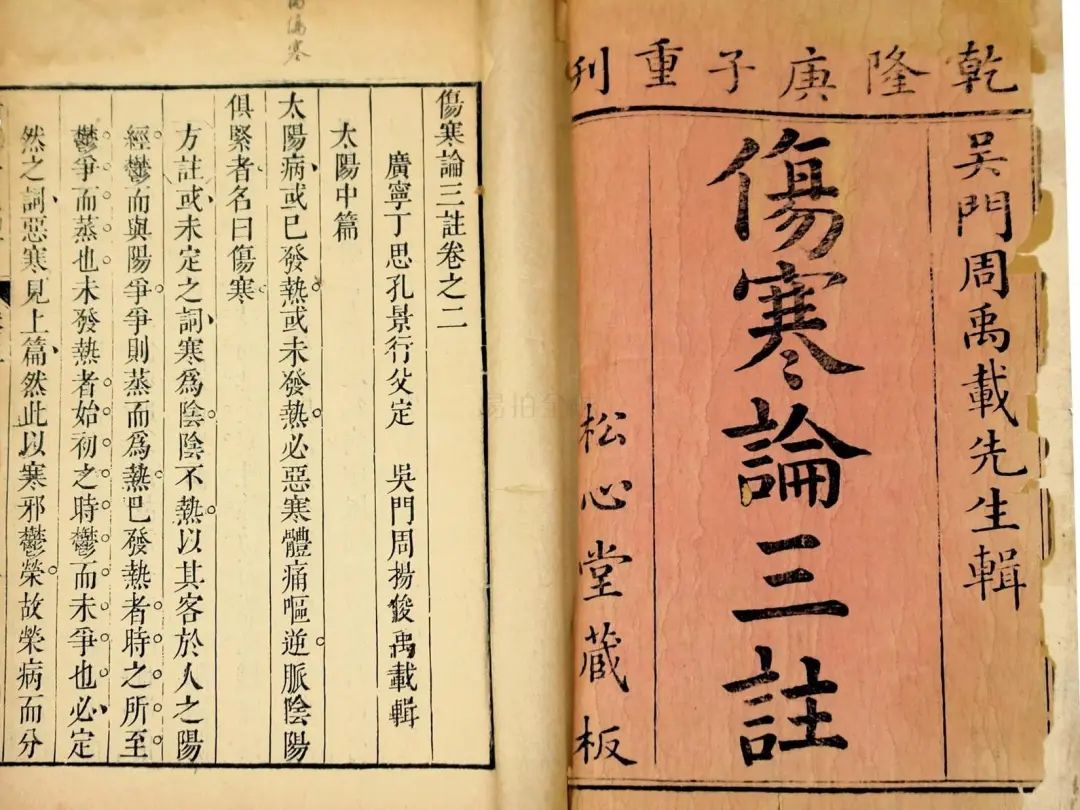 乾隆庚子重刊
吴門周禹載先生輯
傷寒論三註
松心堂藏板
傷寒
傷寒論三註卷之二
廣寧丁思孔景行父定 吳門周揚俊禹載輯
太陽中篇
太陽病或已發熱或未發熱必惡寒體痛嘔逆脈陰陽
俱緊者名曰傷寒
方註或未定之詞寒爲陰陰不熱以其客於人之陽
經鬱而與陽爭爭則蒸而爲熱已發熱者時之所至
鬱爭而蒸也未發熱者始初之時鬱而未爭也必定
然之詞惡寒見上篇然此以寒邪鬱榮故榮病而分